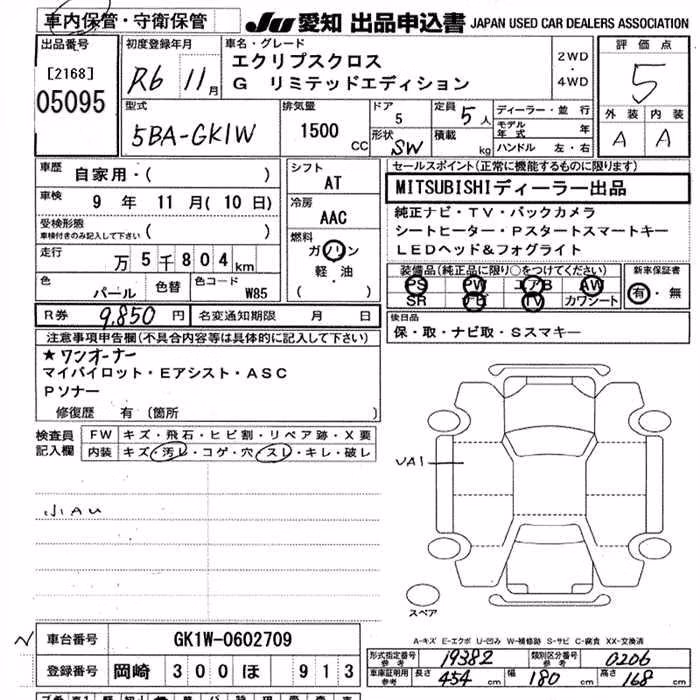 車内保管・守衛保管 JU 愛知 出品申込書 JAPAN USED CAR DEALERS ASSOCIATION
出品番号
[2168]
05095
初度登録年月
R6 11月
車名・グレード
エクリプスクロス
G リミテッドエディション
2WD
・
4WD
評価点
5
外装 内装
A A
型式
5BA-GK1W
排気量
1500 CC
ドア
5
形状
SW
定員
5人
積載
kg
ディーラー・並行
モデル年式 年
ハンドル 左・右
車歴
自家用・( )
車検
9年 11月(10日)
受検形態
車検付きのみ記入して下さい ( )
走行
万5千804km
色
パール
色替
色コード
W85
シフト
AT
冷房
AAC
燃料
ガソリン
・
軽・油
( )
セールスポイント(正常に機能するものに限ります)
MITSUBISHIディーラー出品
純正ナビ・TV・バックカメラ
シートヒーター・Pスタートスマートキー
LEDヘッド&フォグライト
装備品(純正品に限り○をつけてください)
PS PW エアB AW
SR ナビ TV カワシート
新車保証書
有・無
R券 9,850円 名変通知期限 月 日
後日品
保・取・ナビ取・Sスマキー
注意事項申告欄(不具合内容等は具体的に記入して下さい)
★ワンオーナー
マイパイロット・Eアシスト・ASC
Pソナー
修復歴 有(箇所 )
検査員記入欄
FW キズ・飛石・ヒビ割・リペア跡・X要
内装 キズ・汚レ・コゲ・穴・スレ・キレ・破レ
小AU
UA1
スペア
車台番号 GK1W-0602709
登録番号 岡崎 300 ほ 913
A-キズ E-エクボ U-凹み W-補修跡 S-サビ C-腐食 XX-交換済
形式指定番号 参考 19382 類別区分番号 参考 0206
車庫証明用 参考 長さ 454 cm 幅 180 cm 高さ 168 cm